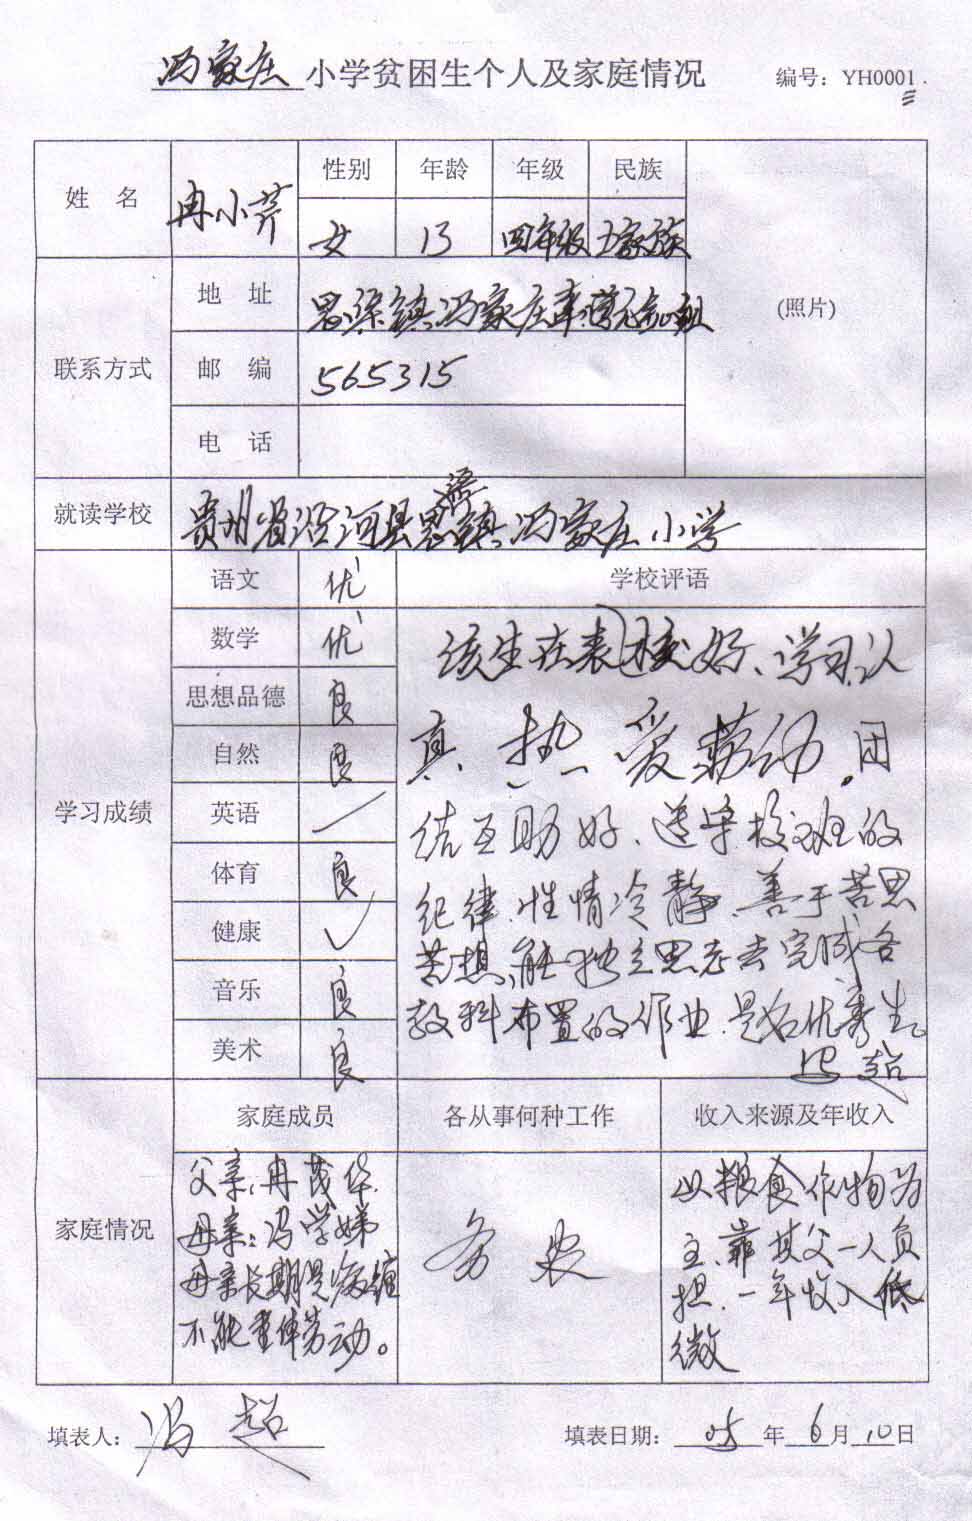 冯家庄小学贫困生个人及家庭情况 编号：YH0001.
姓 名 冉小芹 性别 年龄 年级 民族
女 13 四年级 土家族
(照片)
联系方式 地 址 思渠镇冯家庄
邮 编 565315
电 话
就读学校 贵州省沿河县思渠镇冯家庄小学
学习成绩 语文 优 学校评语
数学 优
思想品德 良
自然 良
英语
体育 良
健康 ✓
音乐 良
美术 良
该生在表现较好、学习认
真、热爱劳动。团
结互助好、遵守校班的
纪律、性情冷静、善于苦思
苦想、能独立思考去完成各
教科布置的作业、是名优秀生。
冯超
家庭情况 家庭成员 各从事何种工作 收入来源及年收入
父亲：冉茂华
母亲：冯学娣
母亲长期
不能重体劳动。
务农
以粮食作物为
主、靠其父一人负
担、一年收入低
微
填表人：冯超 填表日期：05年6月10日